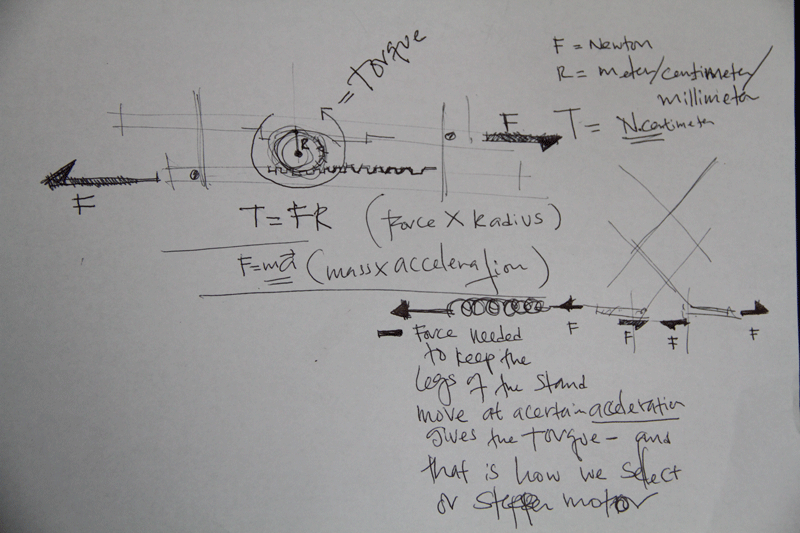 = Torque
F = Newton
R = meter/centimeter/
millimeter
T = N.centimeter
F
R
F
T = FR (Force X Radius)
F=ma (mass x acceleration)
F
F
F
F
Force needed
to keep the
legs of the stand
move at acertain acceleration
gives the Torque - and
that is how we select
or stepper motor